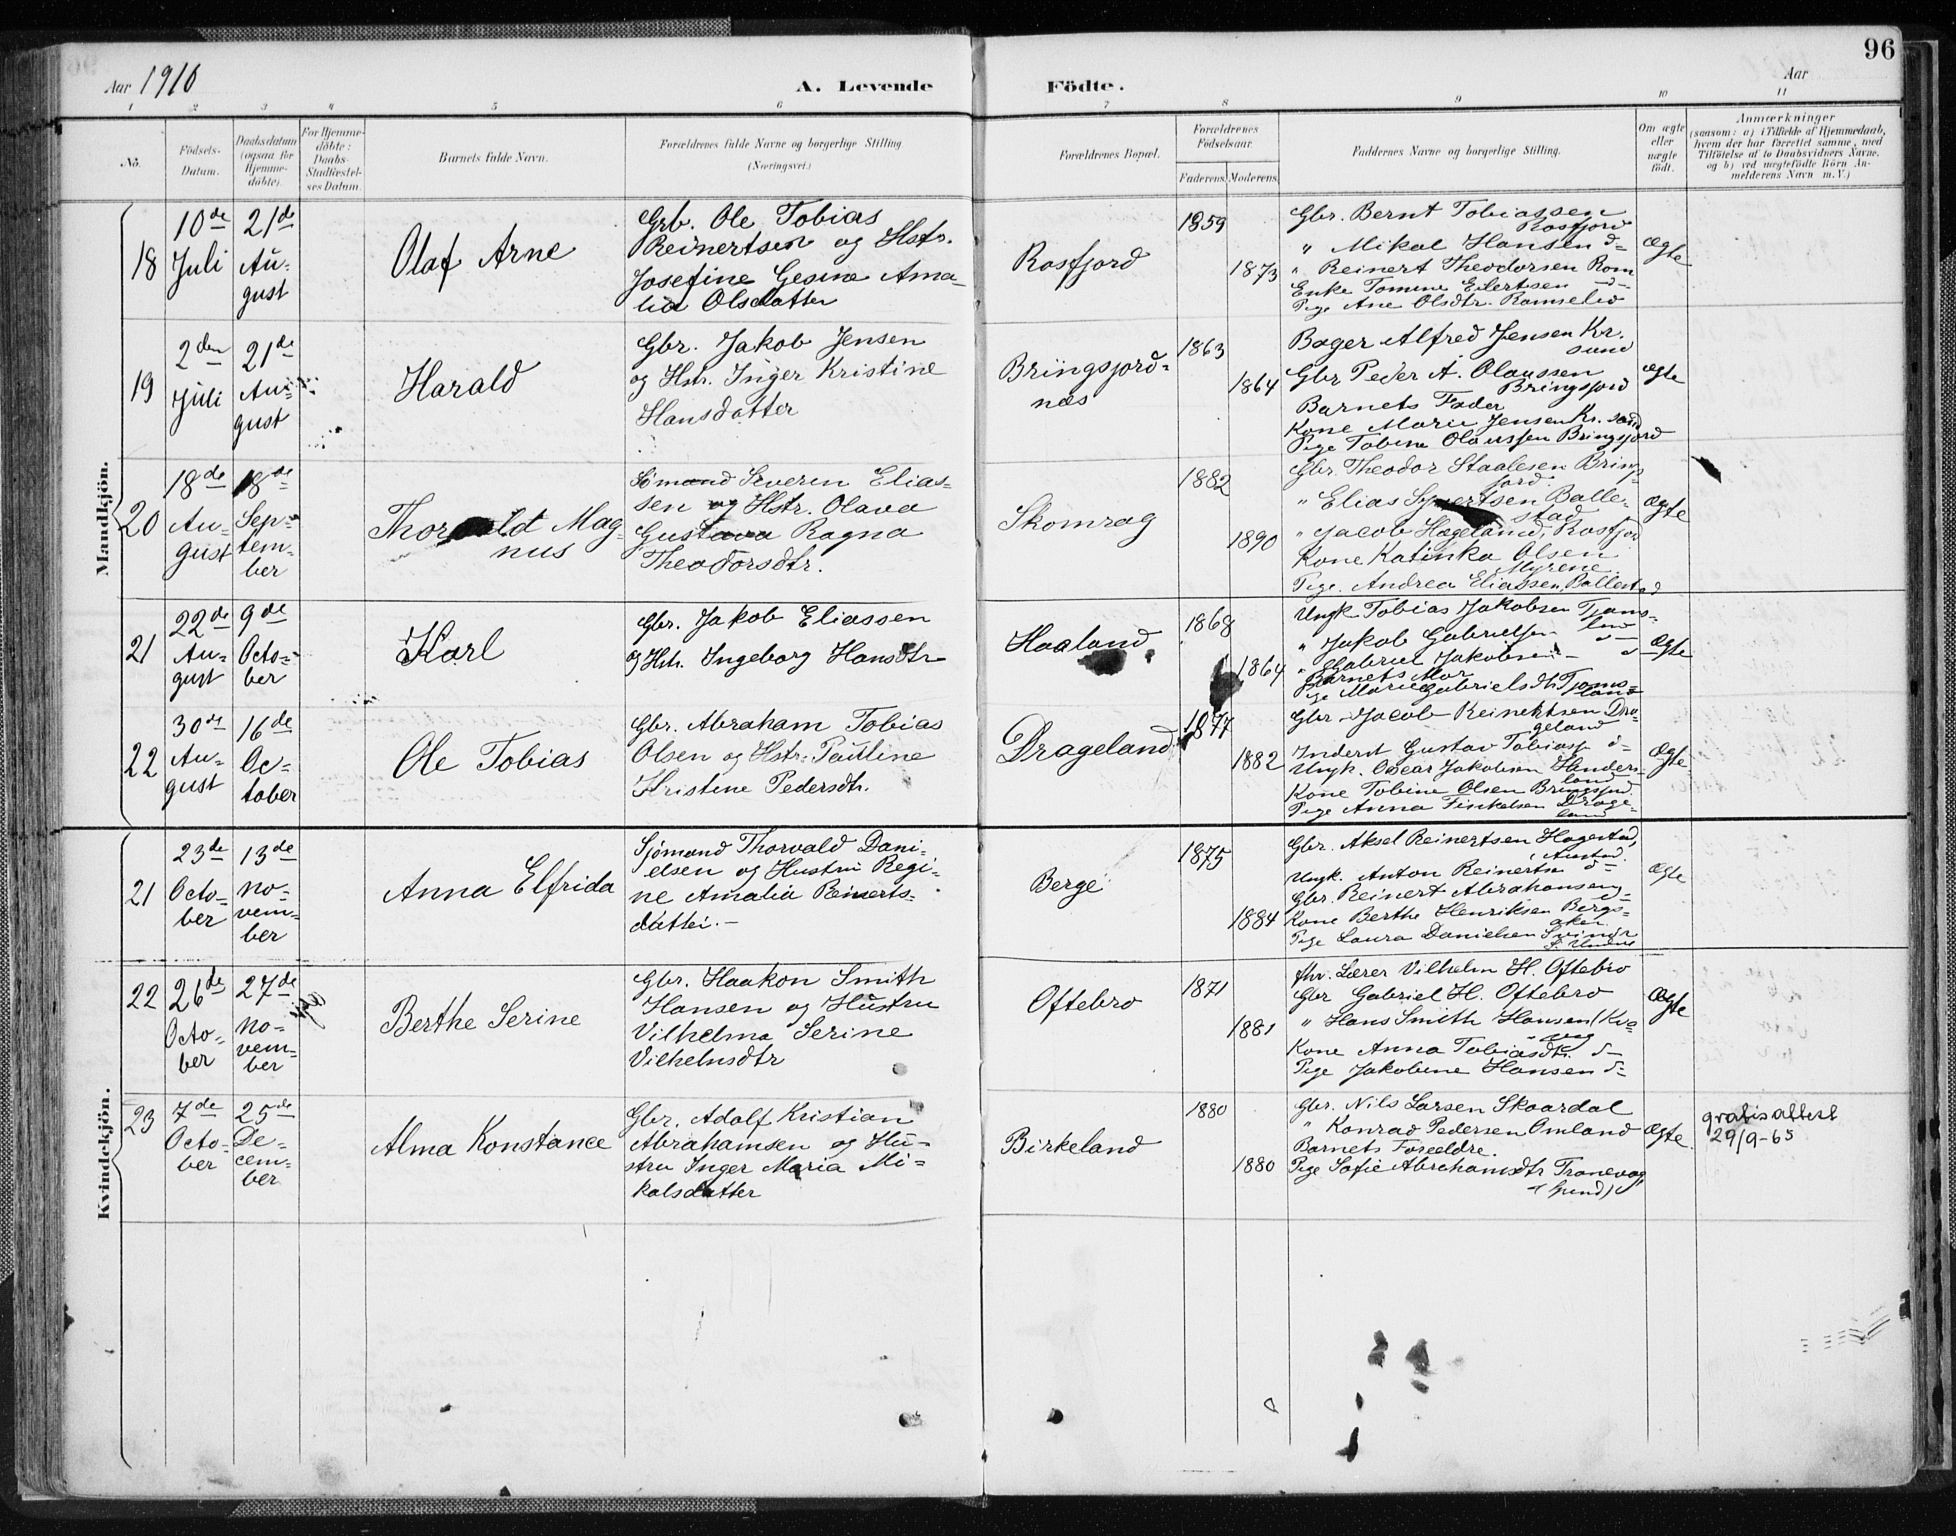 96
Aar 1910
A. Levende
Födte.
Aar
1 2 3 4 5 6 7 8 9 10 11
No.
Födsels-
Datum.
Daabsdatum
(ogsaa for
Hjemme-
döbte).
For Hjemme-
döbte:
Daabs-
Stadfæstel-
ses Datum.
Barnets fulde Navn.
Forældrenes fulde Navne og borgerlige Stilling
(Næringsvei.)
Forældrenes Bopæl.
Forældrenes
Födselsaar.
Faderens.
Moderens.
Faddernes Navne og borgerlige Stilling.
Om ægte
eller
uægte
födt.
Anmærkninger
(saasom: a) i Tilfælde af Hjemmedaab,
hvem der har forrettet samme, med
Tilföielse af to Daabsvidners Navne.
og b) ved uægtefödte Börn An-
melderens Navn m. V.)
Mandkjön.
18
10de
Juli
21de
Au-
gust
Olaf Arne
Grb. Ole Tobias
Reinertsen og Hstr.
Josefine Gesine Ama-
lia Olsdatter
Rosfjord
1859
1873
Gbr. Bernt Tobiassen
Rosfjord
" Mikal Hansen d-
" Reinert Theodorsen Rom
Enke Tomine Eilertsen -d-
Pige Ane Olsdtr. Romseleo
Ægte
19
2den
Juli
21de
Au-
gust
Harald
Gbr. Jakob Jensen
og Hstr. Inger Kristine
Hansdatter
Bringsjord-
næs
1863
1864
Bager Alfred Jensen Kr.
sund
Gbr Peder A. Olaussen
Bringsjord
Barnets Fader
Kone Marie Jensen Kr. sand
Pige Tobine Olaussen Bringsjord
Ægte
20
18de
Au-
gust
18de
Sep-
tem-
ber
Thorvald Mag-
nus
Sömand Severin Elias-
sen og Hstr. Olava
Gustava Ragna
Theodorsdtr.
Skomrag
1882
1890
Gbr Theodor Staalesen Brings-
jord.
" Elias Syvertsen Balle-
stad
" Jacob Hægeland, Rosfjord
Kone Katinka Olsen
Myrene.
Pige. Andrea Eliassen, Ballestad
Ægte
21
22de
Au-
gust
9de
Octo-
ber
Karl
Gbr. Jakob Eliassen
og Hstr. Ingeborg Hansdtr
Haaland
1868
1864
Ungk Tobias Jakobsen Tjoms-
land
" Jakob Gabrielsen
" Gabriel Jakobsen -
Barnets Mor
Pige Marie Gabrielsdtr Tjoms-
land
Ægte
22
30de
Au-
gust
16de
Oc-
tober
Ole Tobias
Gbr. Abraham Tobias
Olsen og Hstr. Pauline
Kristine Pedersdtr.
Drageland
1877
1882
Gbr Jacob Reinertsen Dra-
geland
Inderst Gustav Tobiass d-
Ungk. Oscar Jakobsen Hander-
land
Kone Tobine Olsen Bringsjord.
Pige Anna Finkelsen Drage-
land
Ægte
Kvindekjön.
21
23de
Octo-
ber
13de
No-
vem-
ber
Anna Elfrida
Sjömand Thorvald Dani-
elsen og Hustru Regi-
ne Amalia Reinerts-
datter. -
Berge
1875
1884
Gbr. Aksel Reinertsen Hagestad,
Austad.
Ungk. Anton Reinertsen d-
Gbr. Reinert Abrahamsen d-
Kone Berthe Henriksen Bergs-
aker
Pige Laura Danielsen Svinör
Ægte
22
26de
Octo-
ber
27de
No-
vem-
ber
Berthe Serine
Gbr. Haakon Smith
Hansen og Hustru
Vilhelma Serine
Vilhelmsdtr
Oftebro
1871
1881
fhv. Lærer Vilhelm H. Oftebro
Gbr Gabriel H. Oftebro
" Hans Smith Hansen (Kva-
Kone Anna Tobiasdtr. d-
Pige Jakobine Hansen d-
Ægte
23
7de
Octo-
ber
25de
De-
cem-
ber
Alma Konstance
Gbr. Adolf Kristian
Abrahamsen og Hu-
stru Inger Maria Mi-
kalsdatter
Birkeland
1880
1880
Gbr. Nils Larsen Skaardal
" Konrad Pedersen Omland
Barnets Forældre.
Pige Sofie Abrahamsdtr Tranevag,
Ægte
gratis attest
29/9-65